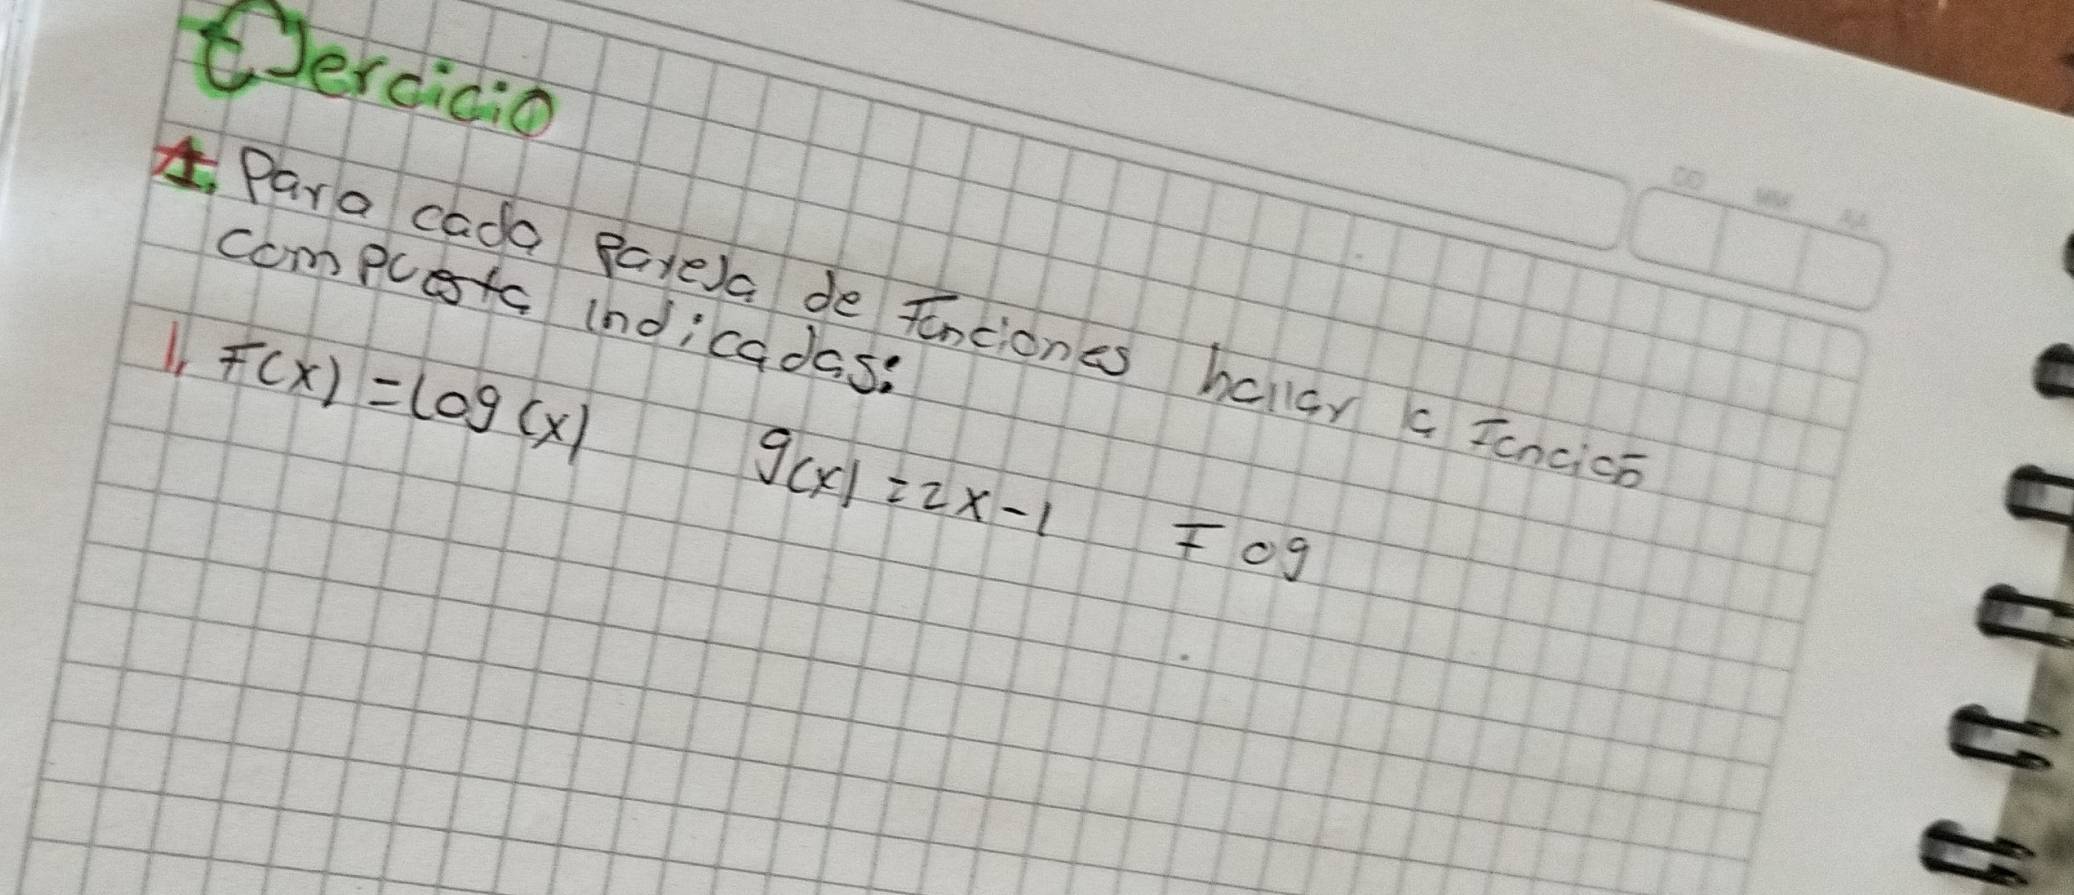 Ejercicio
A. Para cada pareja de funciones hallar la función
compuesta indicadas:
1. F(x) = log(x) g(x) = 2x-1 F o g
DD MM AA